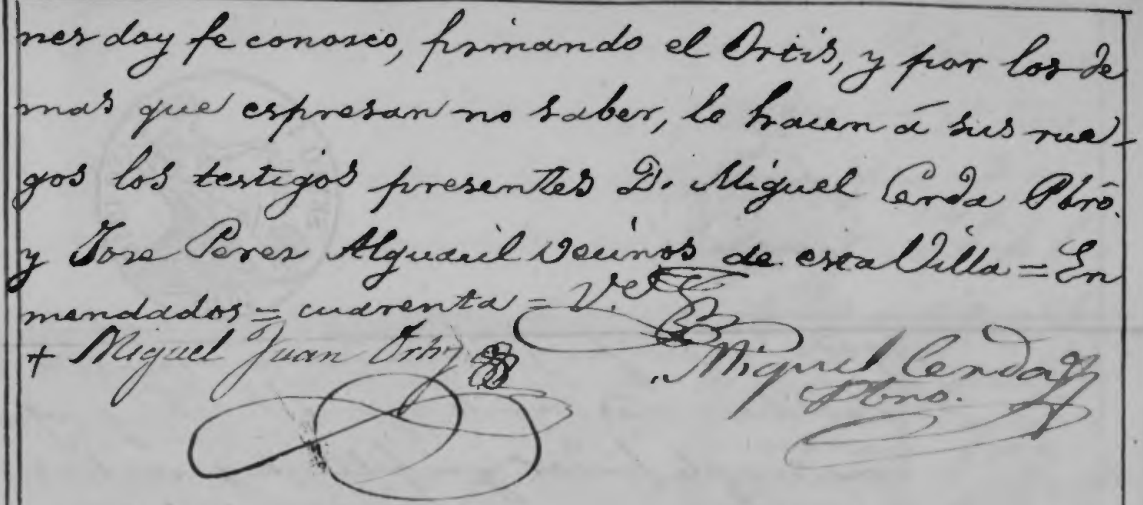 nes doy fe conosco, firmando el Ortis, y por los de
mas que espresan no saber, lo hacen á sus rue-
gos los testigos presentes D. Miguel Cerda Pbrõ.
y Jose Perez Alguacil vecinos de esta Villa = En
mendados = cuarenta =
+ Miguel Juan Ortiz
Miguel Cerda
Pbro.